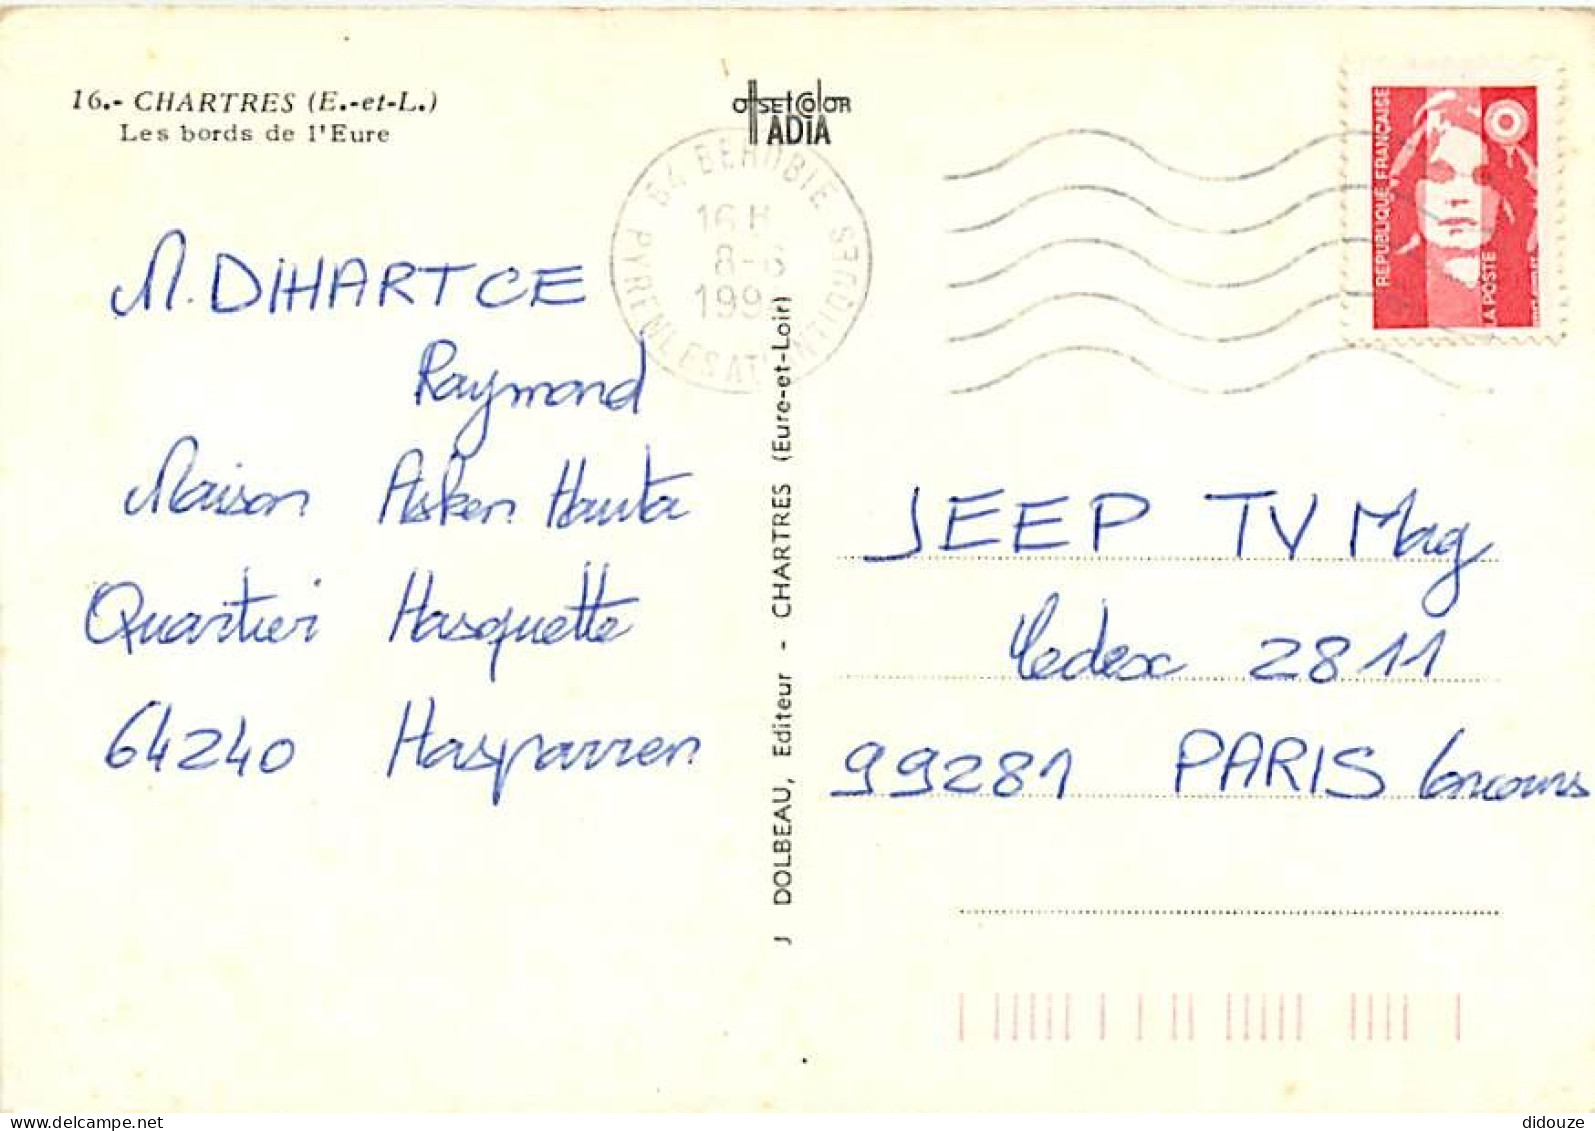 16.- CHARTRES (E.-et-L.)
Les bords de l'Eure
OFFSET COLOR
ADIA
64 BEHOBIE
16 H
8-6
199
PYRENEES ATLANTIQUES
REPUBLIQUE FRANÇAISE
LA POSTE
M. DIHARTCE
Raymond
Maison Asken Hauta
Quartier Hasquette
64240 Hasparren
J DOLBEAU, Editeur - CHARTRES (Eure-et-Loir)
JEEP TV Mag
Cedex 2811
99281 PARIS Concours
delcampe.net
didouze